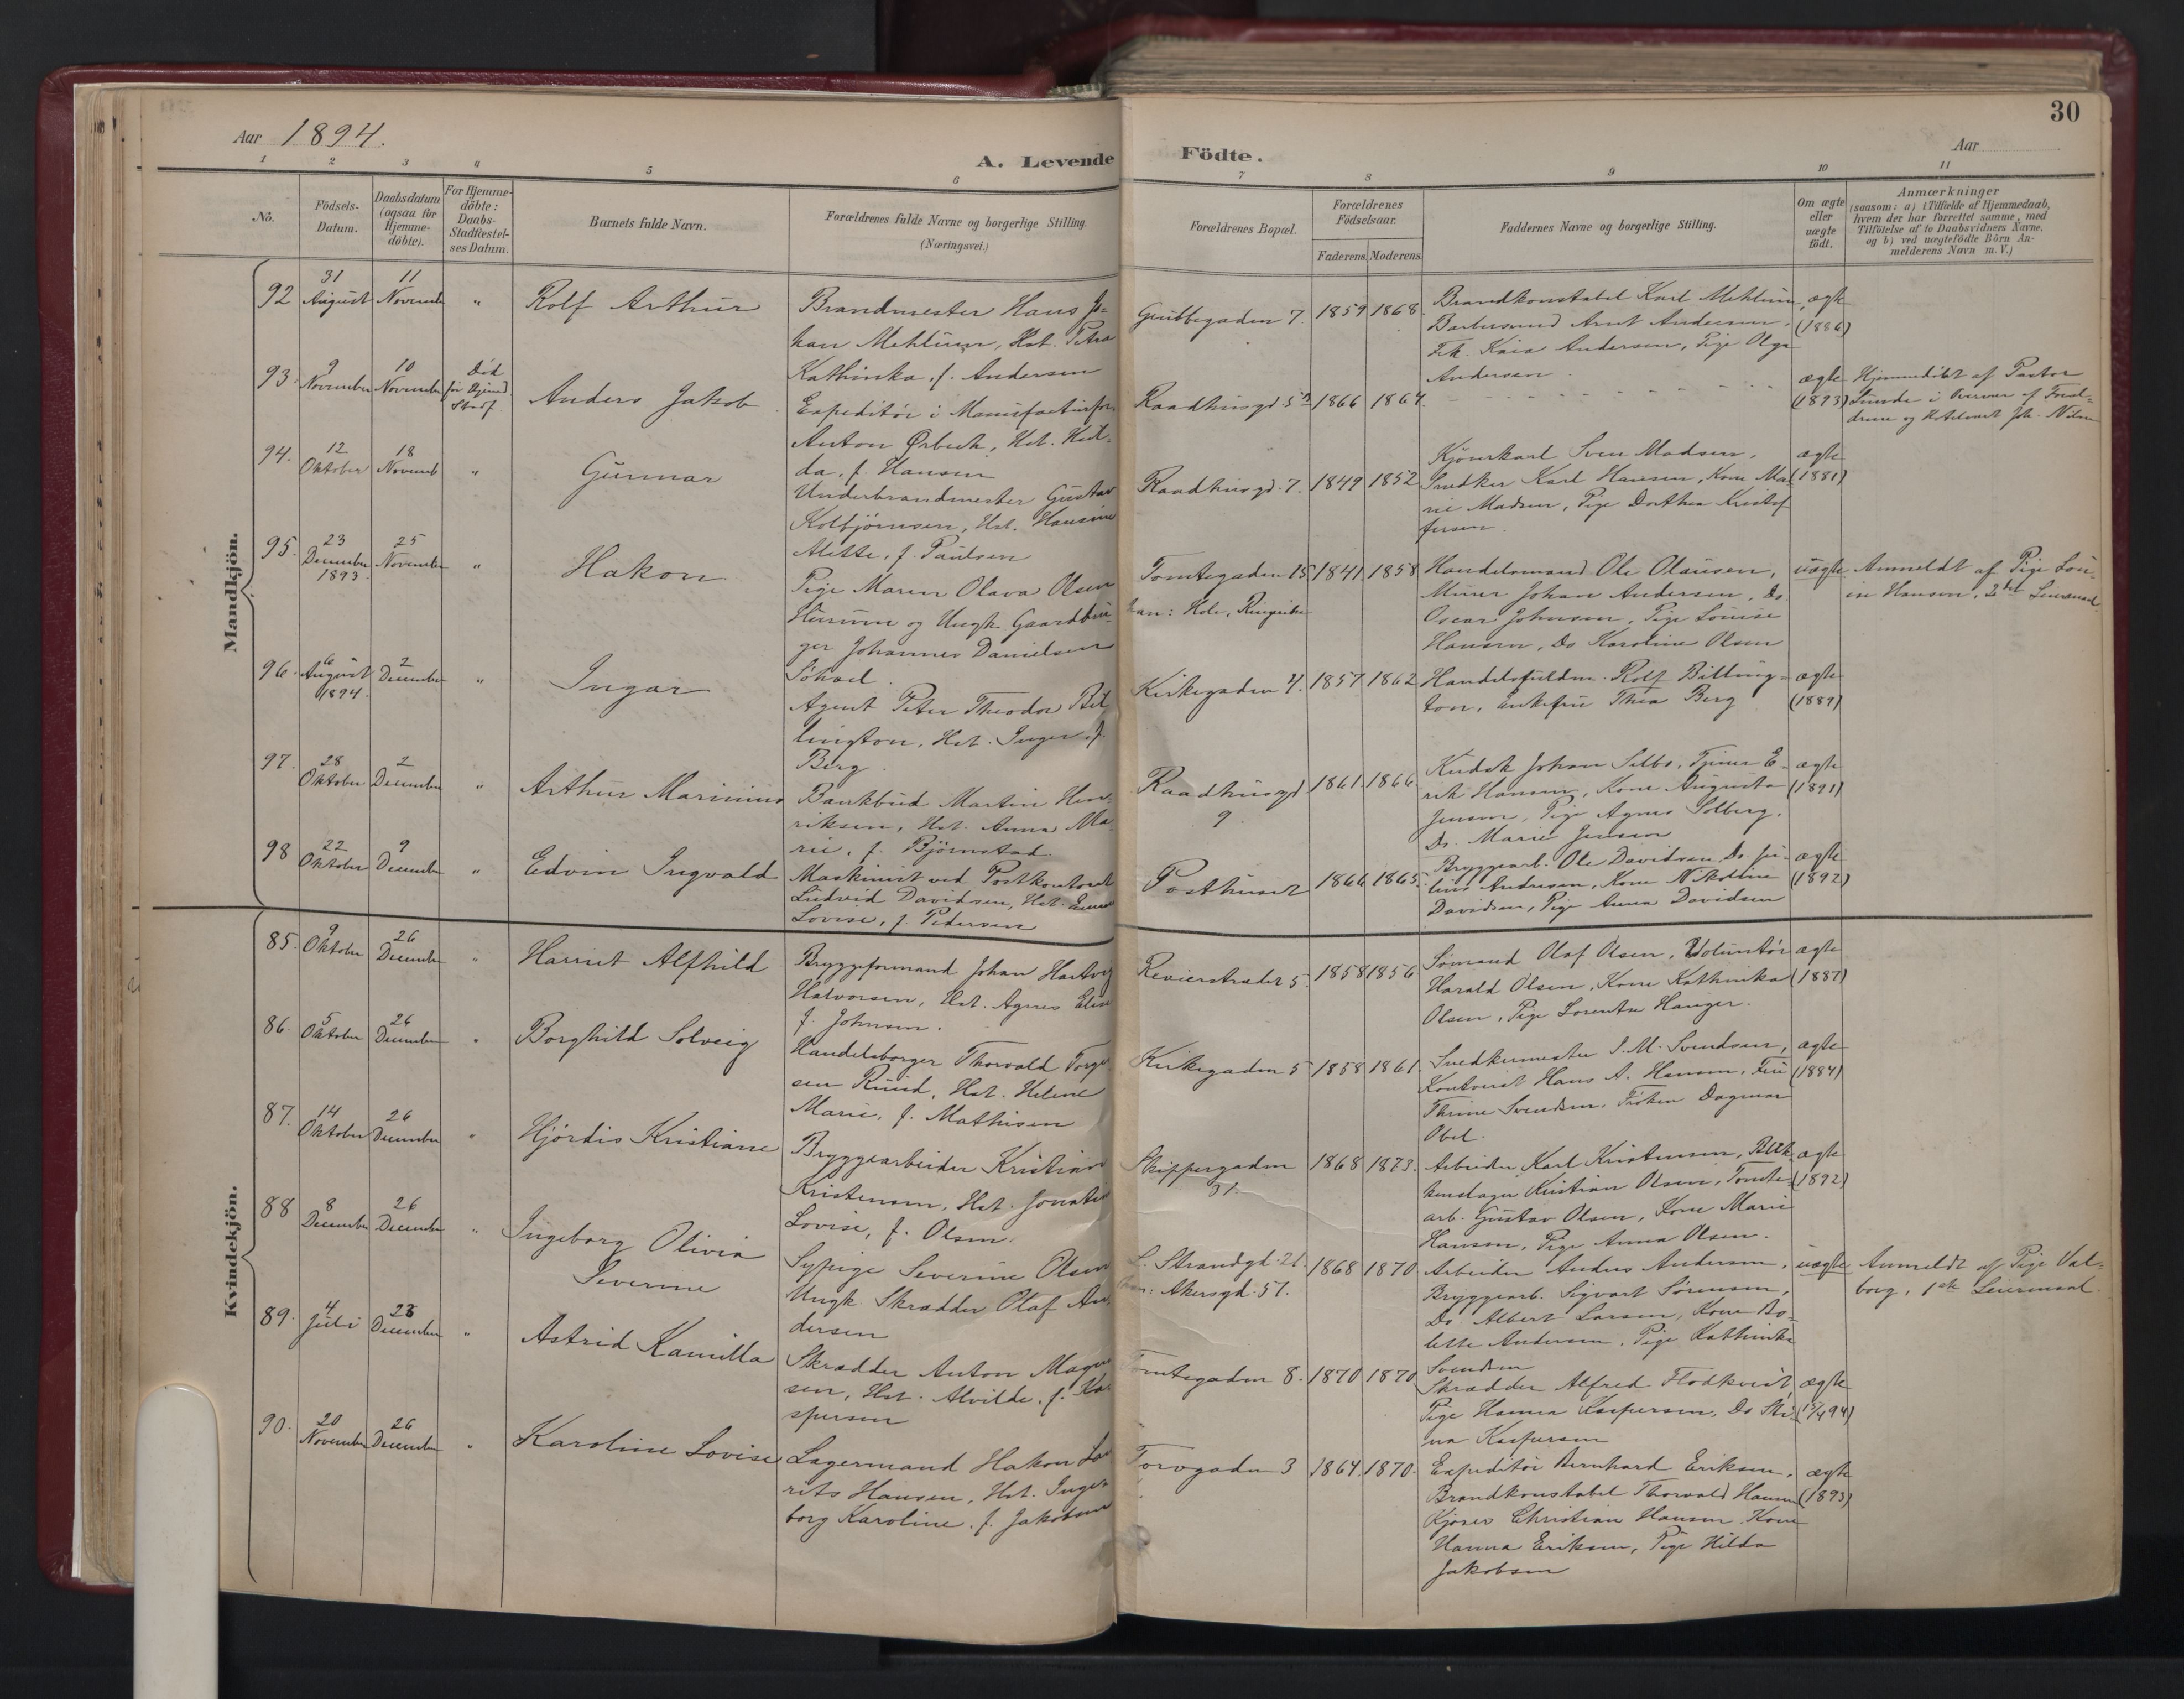 30
Aar 1894.
A. Levende Födte.
Aar
1 2 3 4 5 6 7 8 9 10 11
No.
Födsels-Datum.
Daabsdatum (ogsaa för Hjemme-döbte).
For Hjemme-döbte: Daabs-Stadfæstel-ses Datum.
Barnets fulde Navn.
Forældrenes fulde Navne og borgerlige Stilling. (Næringsvei.)
Forældrenes Bopæl.
Forældrenes Födselsaar.
Faderens. Moderens.
Faddernes Navne og borgerlige Stilling.
Om ægte eller uægte födt.
Anmærkninger
(saasom: a) i Tilfælde af Hjemmedaab,
hvem der har forrettet samme, med
Tilföielse af to Daabsvidners Navne,
og b) ved uægtefödte Börn An-
melderens Navn m. V.)
Mandkjön.
92 31 August 11 Novemb " Rolf Arthur
Brandmester Hans Jo-
han Mehlum, Hst. Petra
Kathinka, f. Andersen
Grubbegaden 7. 1859 1868.
Brandkonstabel Karl Mehlum,
Barbersvend Arnt Andersen,
Frk. Kaia Andersen, Pige Olga
Andersen
ægte (1886)
93. 9 November 10 November Död
Anders Jakob
Expeditör i Manufacturfor.
Anton Ørbech, Hst. Hul-
da, f. Hansen
Raadhusgd. 1866 1864.
ægte (1893)
Hjemmedöbt af Pastor
i Overvær af Foræl-
drene og Joh. Nilsen
94. 12 Oktober 18 Novemb " Gunnar
Underbrandmester Gustav
Kolbjörnsen, Hst. Hansine
Alette, f. Paulsen
Raadhusgd. 7. 1849 1852
Kjörekarl Sven Madsen,
Snedker Karl Hansen, Kone Ma-
rie Madsen, Pige Dorthea Kristof
fersen.
ægte (1881)
95. 23 December 1893. 25 November " Hakon
Pige Maren Olava Olsen
og Ungk. Gaardbru-
ger Johannes Danielsen
Tomtegaden 15 1841 1858
han: Hole, Ringerike
Handelsmand Ole Olausen,
Murer Johan Andersen, Do
Oscar Johnsen, Pige Louise
Hansen, Do Karoline Olsen
uægte Anmeldt af Pige Lou-
ise Hansen, 2det Leiermaal.
96. 6 August 1894. 2 December " Ingar
Agent Peter Theodor Bil
lington, Hst. Inger, f.
Berg.
Kirkegaden 4. 1857 1862
Handelsfuldm. Rolf Billing-
ton, Enkefru Thea Berg
ægte (1889)
97. 28 Oktober 2 December " Arthur Marinius
Bankbud Martin Hen-
riksen, Hst. Anna Ma-
rie, f. Björnstad.
Raadhusgd 9. 1861. 1866.
Kudsk Johan Selbo, Tjener E-
rik Hansen, Kone Augusta
Jensen, Pige Agnes Solberg,
Do. Marie Jensen
ægte (1891)
98 22 Oktober 9 December " Edvin Ingvald
Maskinist ved Postkontoret
Ludvid Davidsen, Hst. Emma
Lovise, f. Pedersen
Posthuset 1866 1865.
Bryggearb. Ole Davidsen, Do. Ju-
lius Andersen, Kone Nikoline
Davidsen, Pige Anna Davidsen
ægte (1892)
Kvindekjön.
85. 9 Oktober 26 December " Harriet Alfhild
Bryggeformand Johan Hartvig
Halvorsen, Hst. Agnes Elise
f. Johnsen.
Revierstrædet 5. 1858 1856
Sömand Olaf Olsen, Voluntör
Harald Olsen, Kone Kathinka
Olsen, Pige Lorentse Hanger.
ægte (1887)
86. 5 Oktober 26 December " Borghild Solveig
Handelsborger Thorvald Torge
sen Ruud, Hst. Helene
Marie, f. Mathisen
Kirkegaden 5 1858 1861.
Snedkermester S. M. Svendsen,
Kontorist Hans A. Hansen, Fru
Thrine Svendsen, Fröken Dagmar
Obel.
ægte (1884)
87. 14 Oktober 26 December " Hjördis Kristiane
Bryggearbeider Kristian
Kristensen, Hst. Jonette
Lovise, f. Olsen.
Skippergaden 31. 1868 1873.
Arbeider Karl Kristensen, Blik
kenslager Kristian Olsen, Tomte-
arb. Gustav Olsen, Kone Marie
Hansen, Pige Anna Olsen.
ægte (1892)
88 8 December 26 December " Ingeborg Olivia
Severine
Sypige Severine Olsen
Ungk. Skrædder Olaf An-
dersen
L. Strandgd. 21. 1868 1870
han: Akersgd. 57.
Arbeider Anders Andersen,
Bryggearb. Sigvart Sörensen,
Do Albert Larsen, Kone Bo-
lette Andersen, Pige Kathinka
Svendsen
uægte Anmeldt af Pige Val-
borg, 1ste Leiermaal.
89. 4 Juli December " Astrid Kamilla
Skrædder Anton Magnu
sen, Hst. Alvilde, f. Ka-
spersen
Tomtegaden 8. 1870 1870
Skrædder Alfred Flodkvist,
Pige Hanna Kaspersen, Do Sti-
na Kaspersen
ægte
90. 20 November 26 December " Karoline Lovise
Lagermand Hakon Lau
rits Hansen, Hst. Inge-
borg Karoline, f. Jakobsen
Torvgaden 3 1864. 1870.
Expeditör Bernhard Eriksen,
Brandkonstabel Thorvald Hansen
Kjörer Christian Hansen, Kone
Hanna Eriksen, Pige Hilda
Jakobsen
ægte (1893)